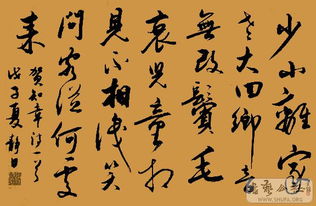 少小離家
老大回鄉音
無改鬢毛
衰兒童相
見不相識笑
問客從何處
来
賀知章詩一首
戊子夏静日
WWW.SHUFA.ORG